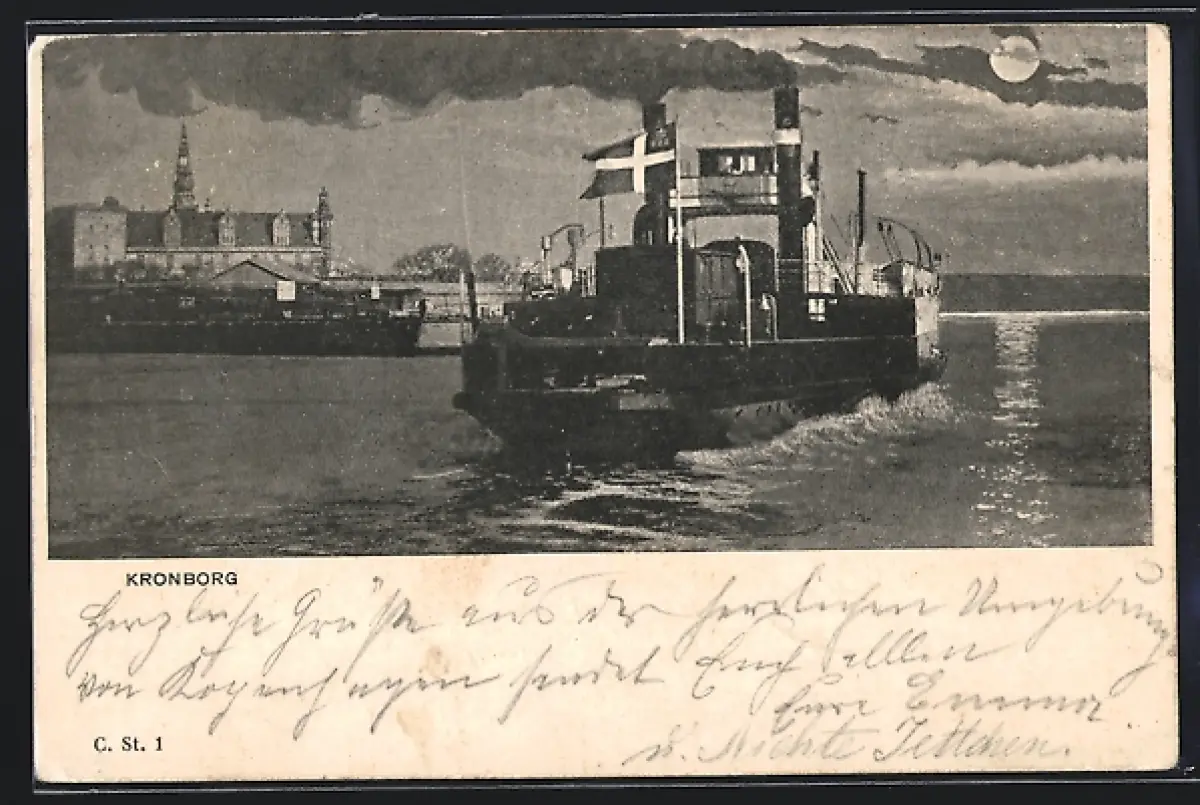 KRONBORG
Herzliche Grüße aus der herrlichen Umgebung
von Kopenhagen sendet Euch allen
Eure Emma
u. Nichte Jettchen.
C. St. 1